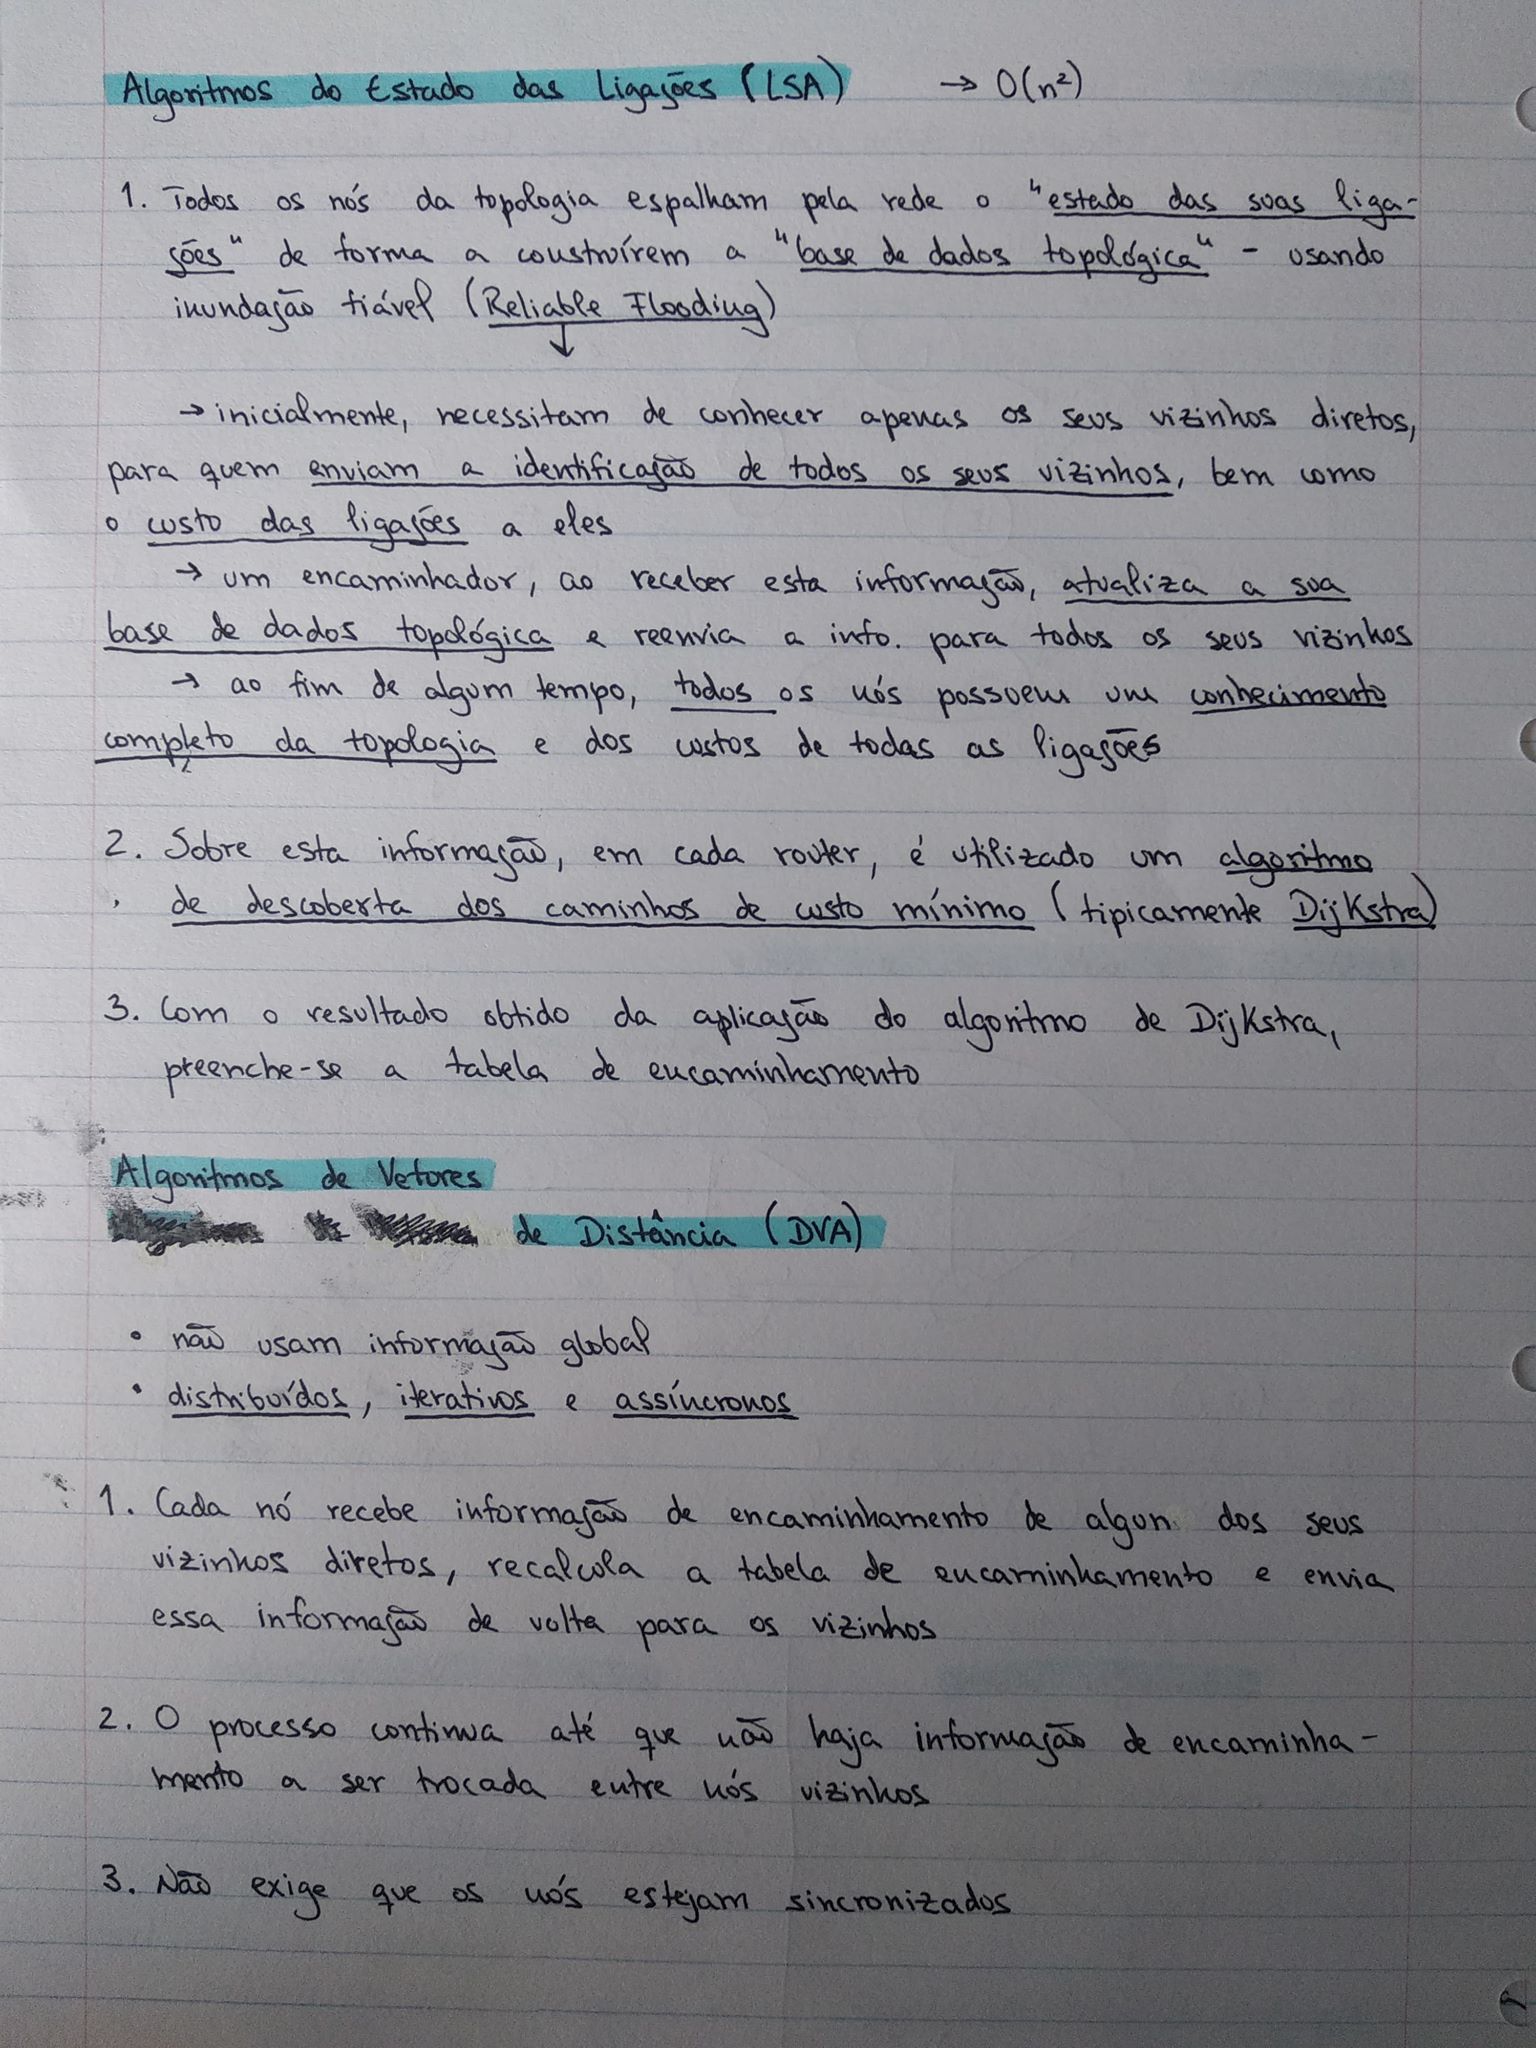 Algoritmos do Estado das Ligações (LSA) → O(n²)
1. Todos os nós da topologia espalham pela rede o "estado das suas liga-
ções" de forma a construírem a "base de dados topológica" - usando
inundação fiável (Reliable Flooding)
↓
→ inicialmente, necessitam de conhecer apenas os seus vizinhos diretos,
para quem enviam a identificação de todos os seus vizinhos, bem como
o custo das ligações a eles
→ um encaminhador, ao receber esta informação, atualiza a sua
base de dados topológica e reenvia a info. para todos os seus vizinhos
→ ao fim de algum tempo, todos os nós possuem um conhecimento
completo da topologia e dos custos de todas as ligações
2. Sobre esta informação, em cada router, é utilizado um algoritmo
de descoberta dos caminhos de custo mínimo (tipicamente Dijkstra)
3. Com o resultado obtido da aplicação do algoritmo de Dijkstra,
preenche-se a tabela de encaminhamento
Algoritmos de Vetores
de Distância (DVA)
• não usam informação global
• distribuídos, iterativos e assíncronos
1. Cada nó recebe informação de encaminhamento de algun dos seus
vizinhos diretos, recalcula a tabela de encaminhamento e envia
essa informação de volta para os vizinhos
2. O processo continua até que não haja informação de encaminha-
mento a ser trocada entre nós vizinhos
3. Não exige que os nós estejam sincronizados